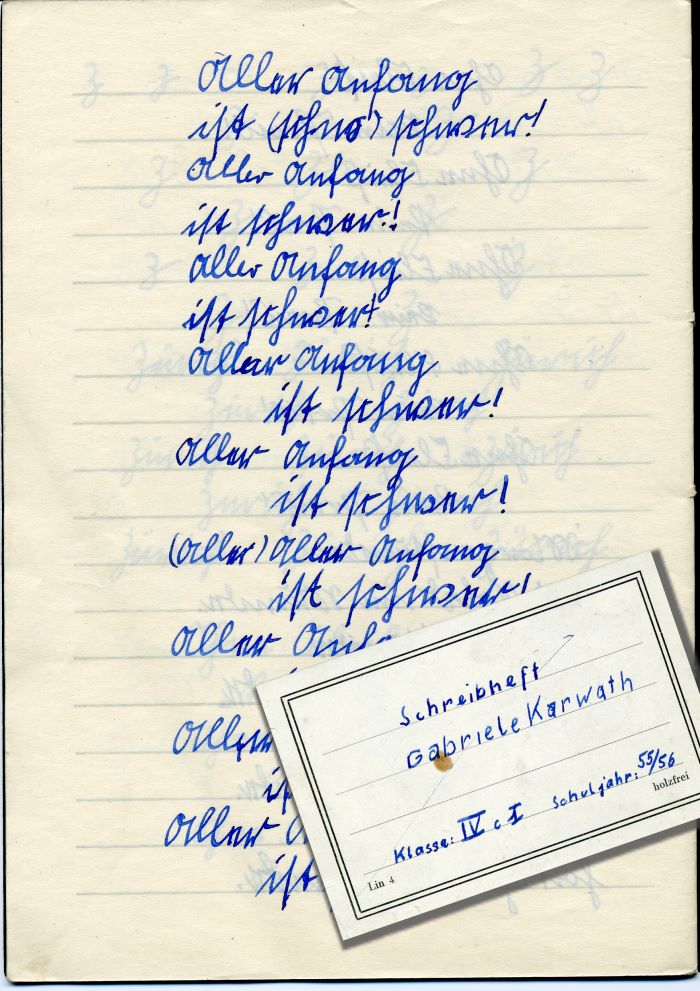 Aller Anfang
ist (schne) schwer!
Aller Anfang
ist schwer!
Aller Anfang
ist schwer!
Aller Anfang
ist schwer!
Aller Anfang
ist schwer!
(Aller) Aller Anfang
ist schwer!
Aller Anfa
Aller
ist
Aller A
ist
Schreibheft
Gabriele Karwath
Klasse: IV c I Schuljahr: 55/56
Lin 4 holzfrei